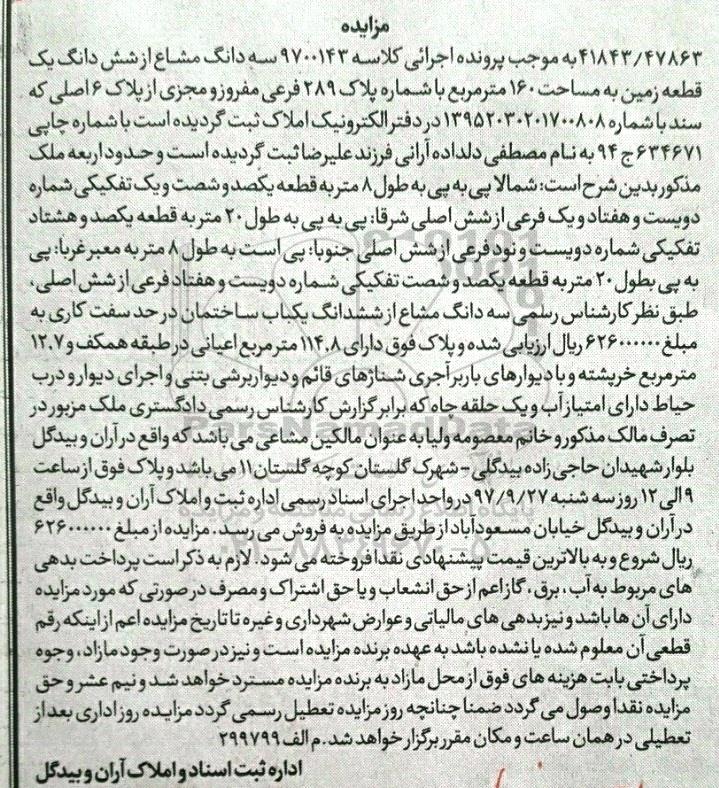 مزایده
۴۱۸۴۳/۴۷۸۶۳ به موجب پرونده اجرائی کلاسه ۹۷۰۰۱۴۳ سه دانگ مشاع از شش دانگ یک
قطعه زمین به مساحت ۱۶۰ مترمربع با شماره پلاک ۲۸۹ فرعی مفروز و مجزی از پلاک ۶ اصلی که
سند با شماره ۱۳۹۵۲۰۳۰۲۰۱۷۰۰۸۰۸ در دفتر الکترونیک املاک ثبت گردیده است با شماره چاپی
۶۳۴۶۷۱ ج ۹۴ به نام مصطفی دلداده آرانی فرزند علیرضا ثبت گردیده است و حدود اربعه ملک
مذکور بدین شرح است: شمالا پی به پی به طول ۸ متر به قطعه یکصد و شصت و یک تفکیکی شماره
دویست و هفتاد و یک فرعی از شش اصلی شرقا: پی به پی به طول ۲۰ متر به قطعه یکصد و هشتاد
تفکیکی شماره دویست و نود فرعی از شش اصلی جنوبا: پی است به طول ۸ متر به معبر غربا: پی
به پی بطول ۲۰ متر به قطعه یکصد و شصت تفکیکی شماره دویست و هفتاد فرعی از شش اصلی،
طبق نظر کارشناس رسمی سه دانگ مشاع از ششدانگ یکباب ساختمان در حد سفت کاری به
مبلغ ۶۲۶۰۰۰۰۰۰ ریال ارزیابی شده و پلاک فوق دارای ۱۱۴.۸ متر مربع اعیانی در طبقه همکف و ۱۲.۷
مترمربع خرپشته و با دیوارهای باربر آجری شناژهای قائم و دیوار برشی بتنی و اجرای دیوار و درب
حیاط دارای امتیاز آب و یک حلقه چاه که برابر گزارش کارشناس رسمی دادگستری ملک مزبور در
تصرف مالک مذکور و خانم معصومه ولیا به عنوان مالکین مشاعی می باشد که واقع در آران و بیدگل
بلوار شهیدان حاجی زاده بیدگلی - شهرک گلستان کوچه گلستان ۱۱ می باشد و پلاک فوق از ساعت
۹ الی ۱۲ روز سه شنبه ۹۷/۹/۲۷ در واحد اجرای اسناد رسمی اداره ثبت و املاک آران و بیدگل واقع
در آران و بیدگل خیابان مسعودآباد از طریق مزایده به فروش می رسد. مزایده از مبلغ ۶۲۶۰۰۰۰۰۰
ریال شروع و به بالاترین قیمت پیشنهادی نقدا فروخته می شود. لازم به ذکر است پرداخت بدهی
های مربوط به آب، برق، گاز اعم از حق انشعاب و یا حق اشتراک و مصرف در صورتی که مورد مزایده
دارای آن ها باشد و نیز بدهی های مالیاتی و عوارض شهرداری و غیره تا تاریخ مزایده اعم از اینکه رقم
قطعی آن معلوم شده یا نشده باشد به عهده برنده مزایده است و نیز در صورت وجود مازاد، وجوه
پرداختی بابت هزینه های فوق از محل مازاد به برنده مزایده مسترد خواهد شد و نیم عشر و حق
مزایده نقدا وصول می گردد ضمنا چنانچه روز مزایده تعطیل رسمی گردد مزایده روز اداری بعد از
تعطیلی در همان ساعت و مکان مقرر برگزار خواهد شد. م الف ۲۹۹۷۹۹
اداره ثبت اسناد و املاک آران و بیدگل
ParsNamadData